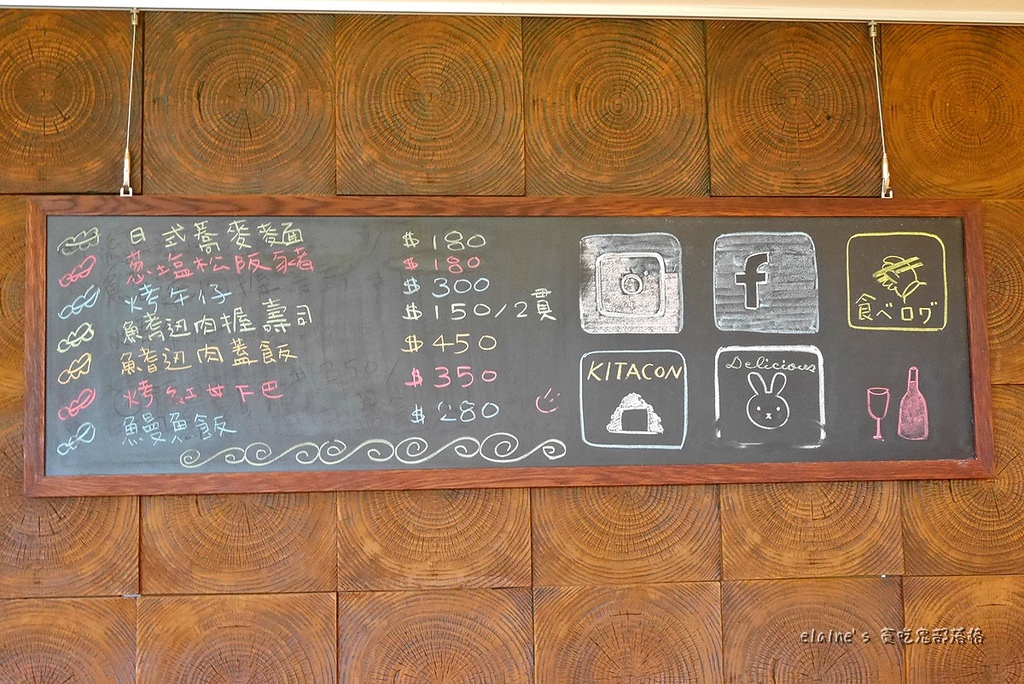 日式蕎麥麵 $180
蔥塩松阪豬 $180
烤牛仔 $300
魚脊迴肉握壽司 $150/2貫
魚脊迴肉蓋飯 $450
烤紅甘下巴 $350
鰻魚飯 $280
f
食べログ
KITACON
Delicious
elaine's 貪吃鬼部落格